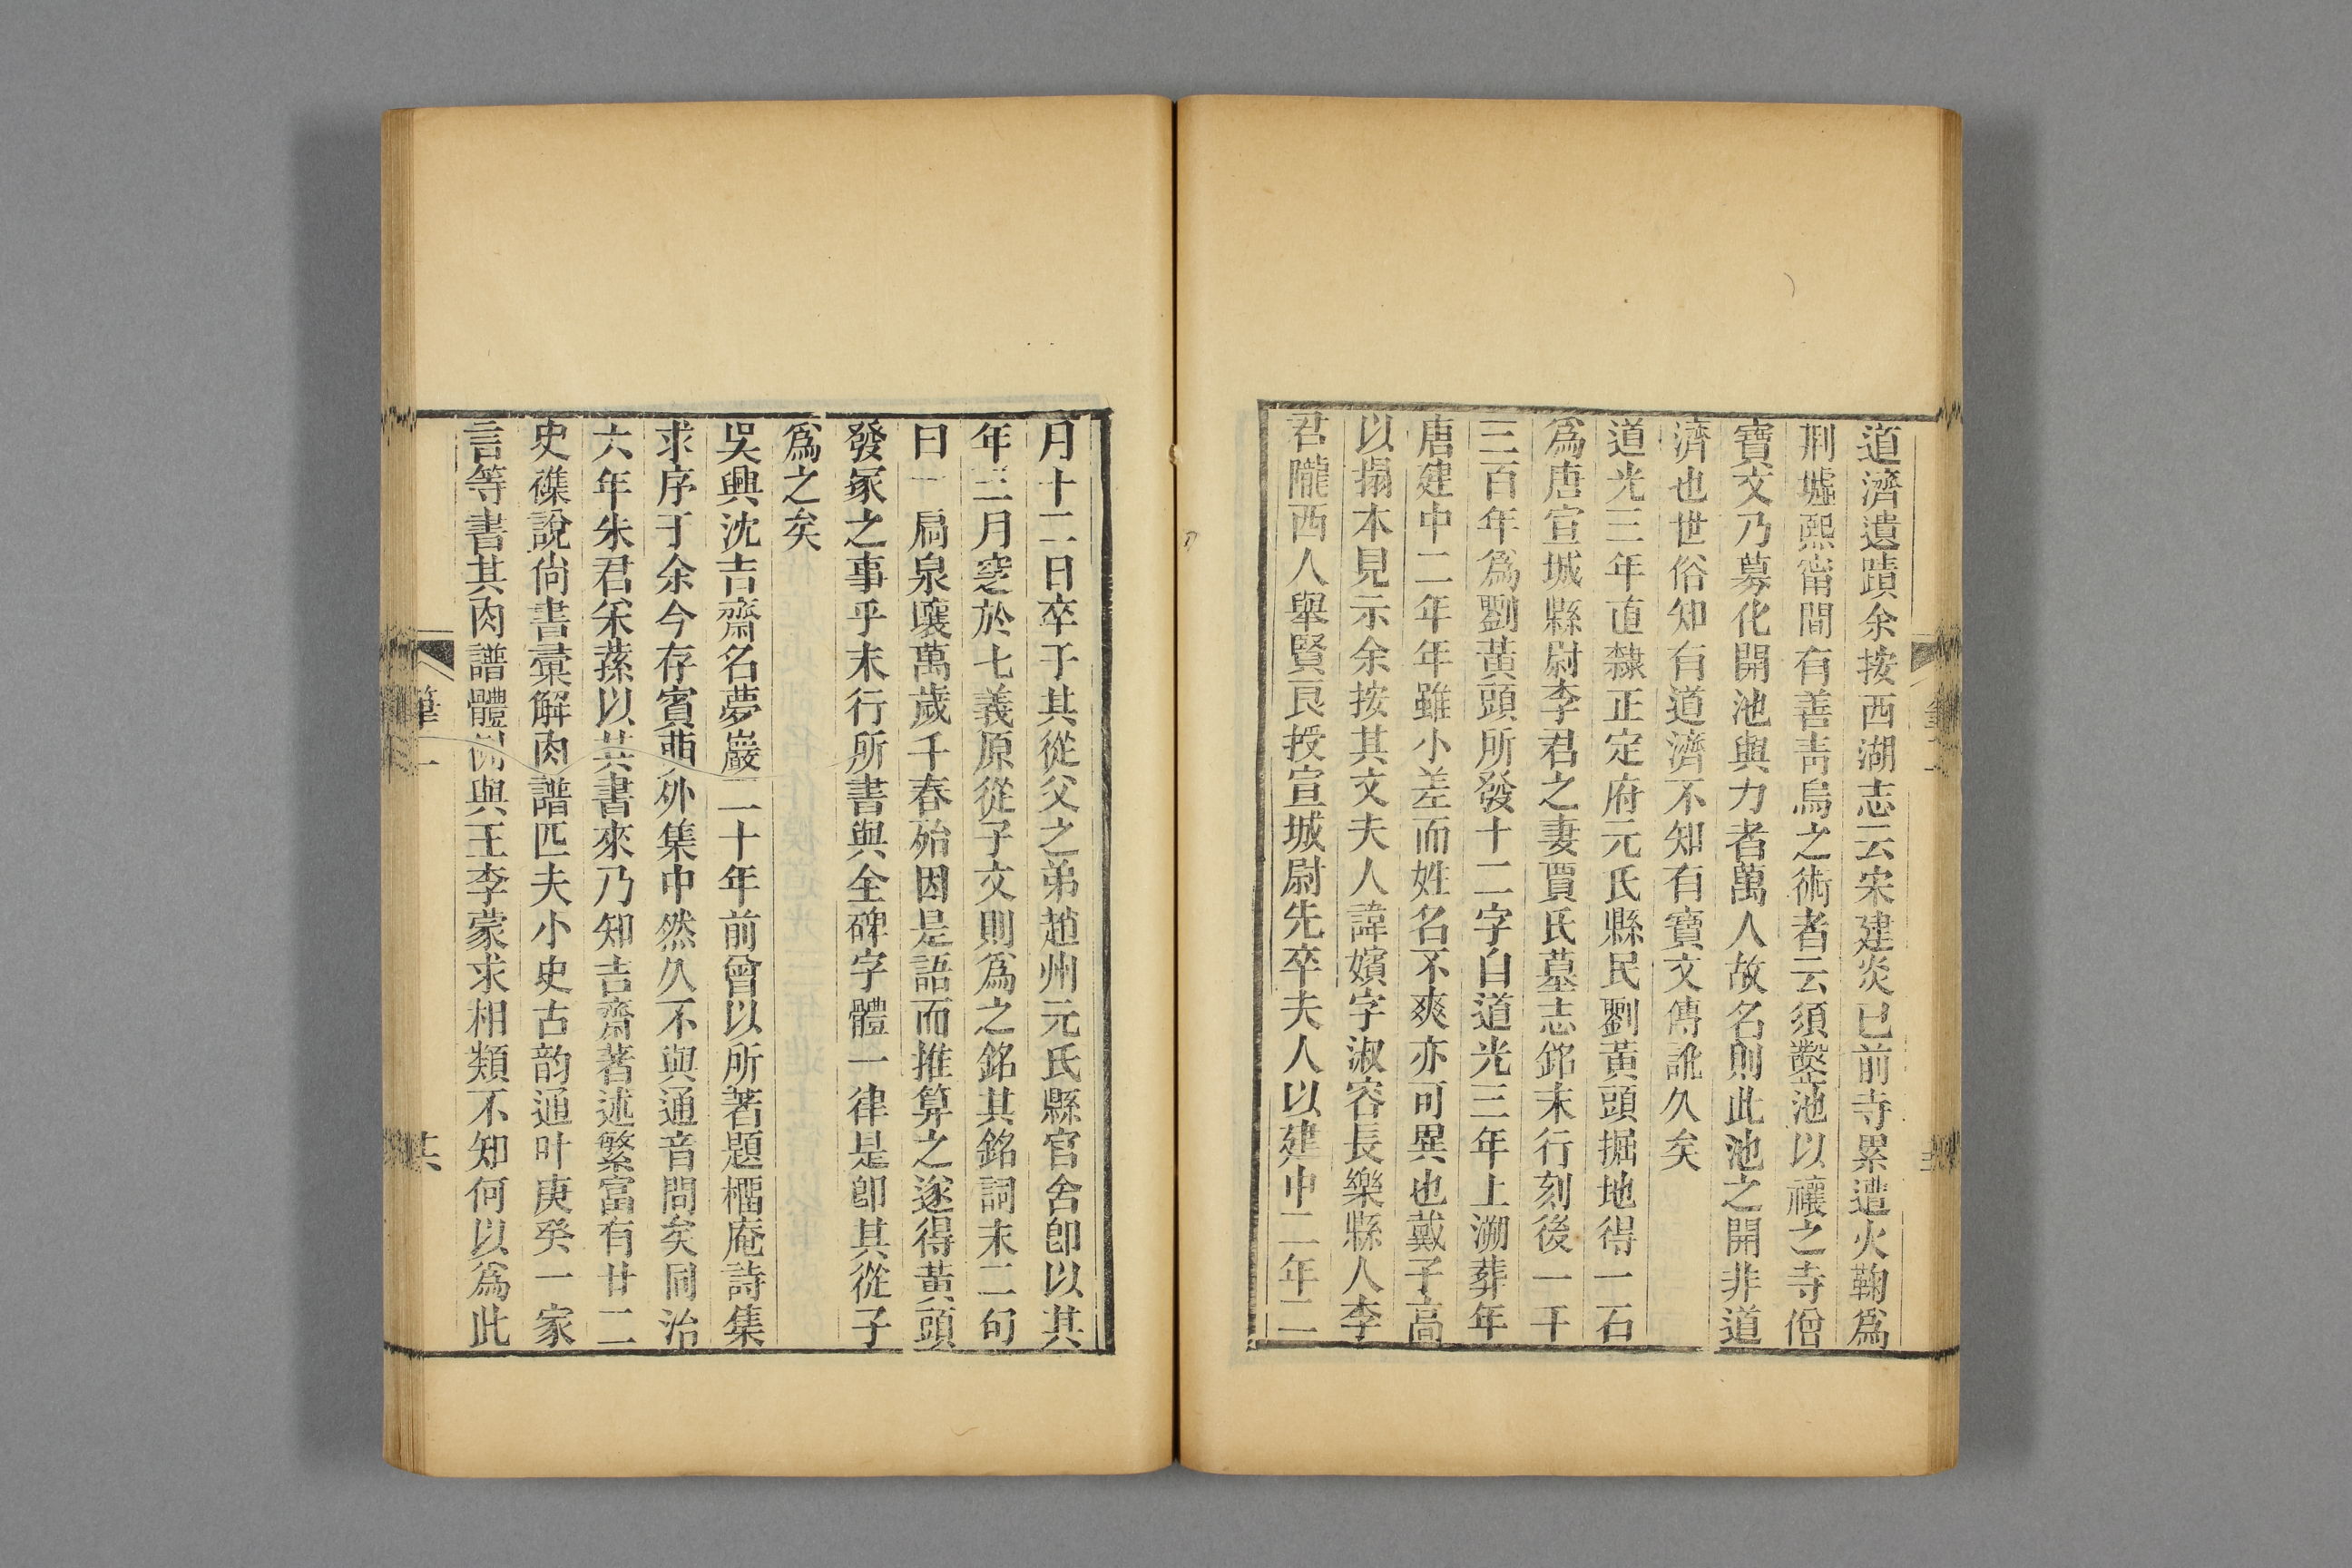 道濟遺蹟余按西湖志云宋建炎已前寺累遭火鞠爲
荆墟熙甯間有善靑烏之術者云須鑿池以禳之寺僧
寶文乃募化開池與力者萬人故名則此池之開非道
濟也世俗知有道濟不知有寶文傳訛久矣
道光三年直隸正定府元氏縣民劉黃頭掘地得一石
爲唐宣城縣尉李君之妻賈氏墓志銘末行刻後一千
三百年爲劉黃頭所發十二字自道光三年上溯葬年
唐建中二年年雖小差而姓名不爽亦可異也戴子高
以搨本見示余按其文夫人諱嬪字淑容長樂縣人李
君隴西人舉賢良授宣城尉先卒夫人以建中二年二
月十二日卒于其從父之弟趙州元氏縣官舍卽以其
年三月窆於七義原從子文則爲之銘其銘詞末二句
曰一扃泉壤萬歲千春殆因是語而推算之遂得黃頭
發冢之事乎末行所書與全碑字體一律是卽其從子
爲之矣
吳興沈吉齋名夢巖二十年前曾以所著題櫺庵詩集
求序于余今存賓萌外集中然久不與通音問矣同治
六年朱君采蓀以其書來乃知吉齋著述繁富有廿二
史襍說尙書彙解肉譜匹夫小史古韵通叶庚癸一家
言等書其肉譜體例與王李蒙求相類不知何以爲此
筆一